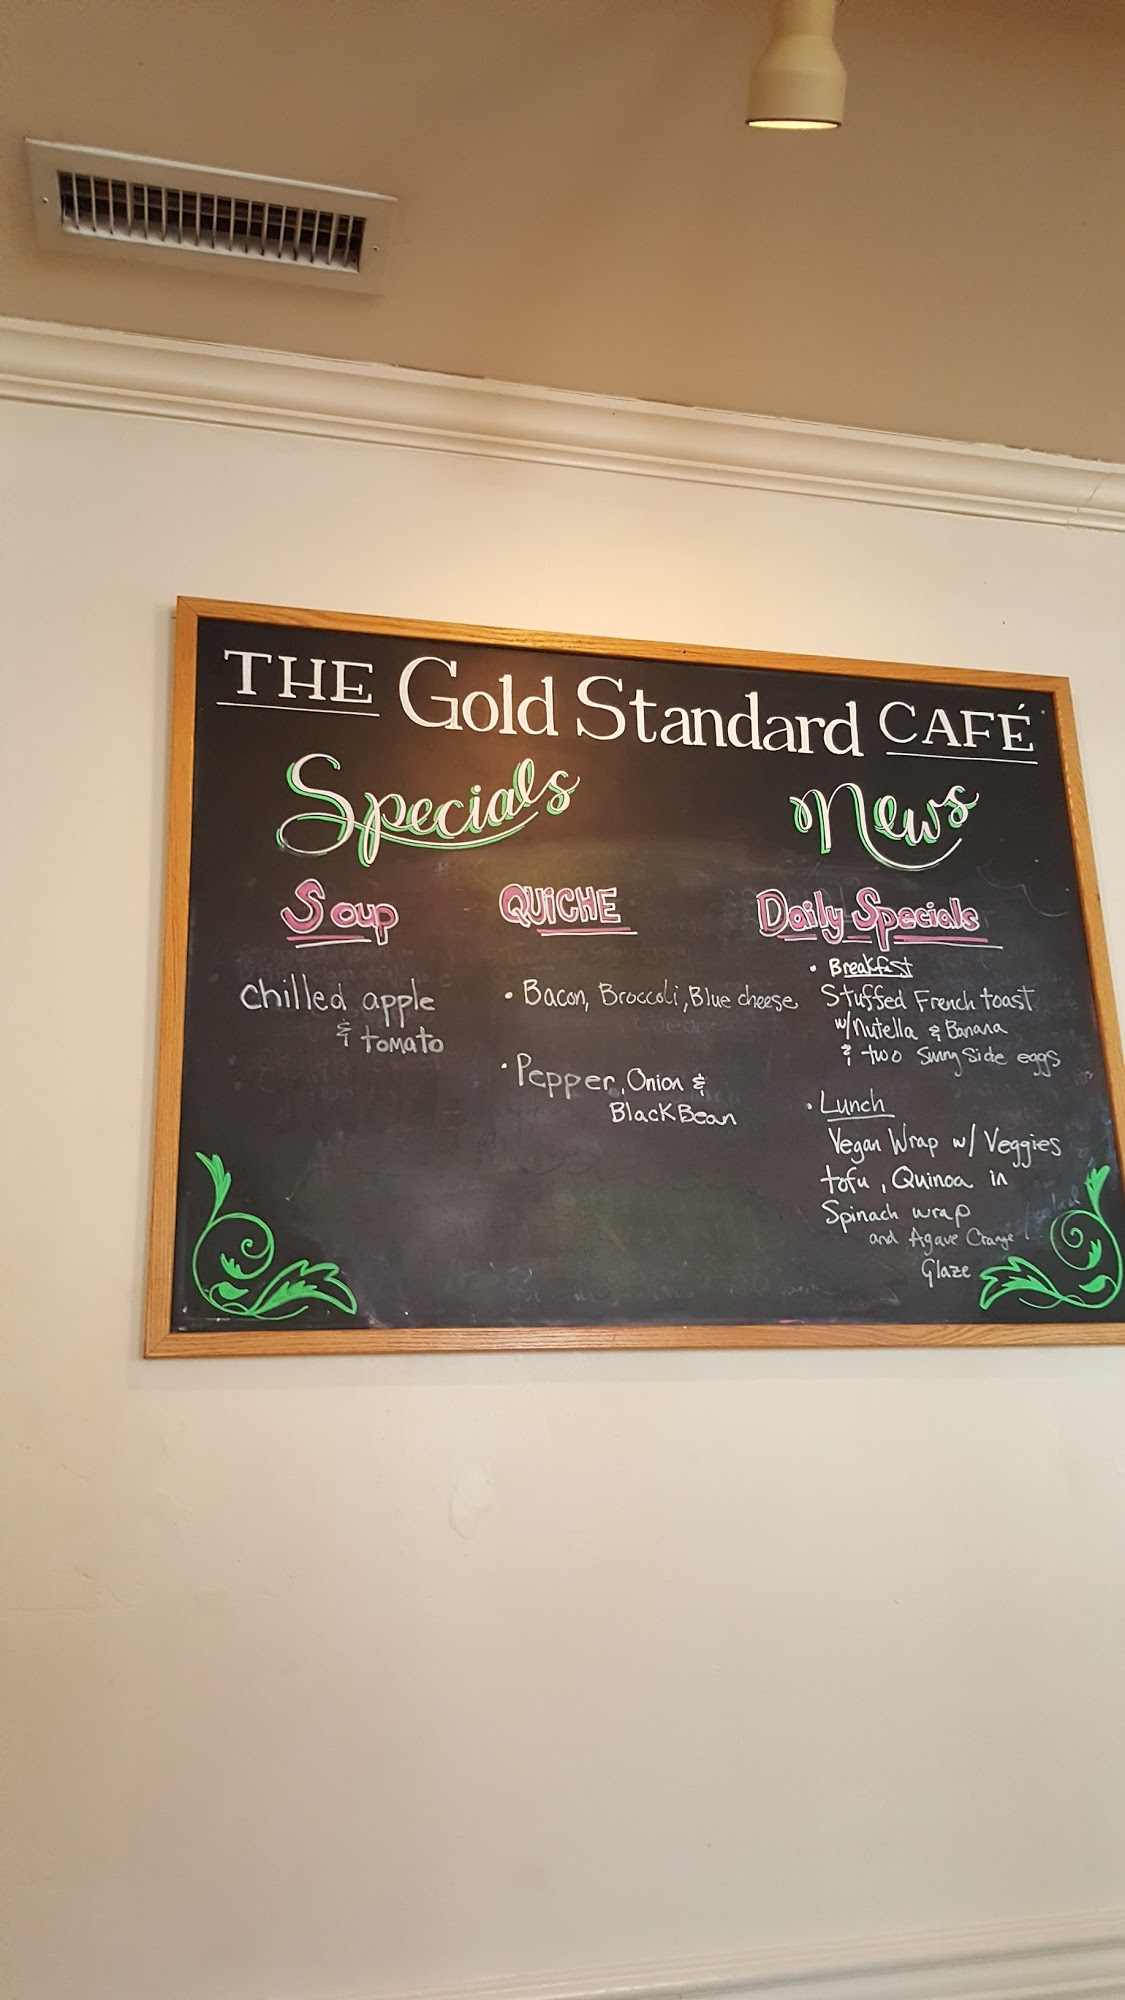 THE Gold Standard CAFÉ
Specials
News
Soup
chilled apple
& tomato
QUiCHE
• Bacon, Broccoli, Blue cheese
• Pepper, Onion &
Black Bean
Daily Specials
• Breakfast
Stuffed French toast
w/Nutella & Banana
& two Sunny Side eggs
• Lunch
Vegan Wrap w/ Veggies
tofu, Quinoa in
Spinach wrap
and Agave Orange
Glaze